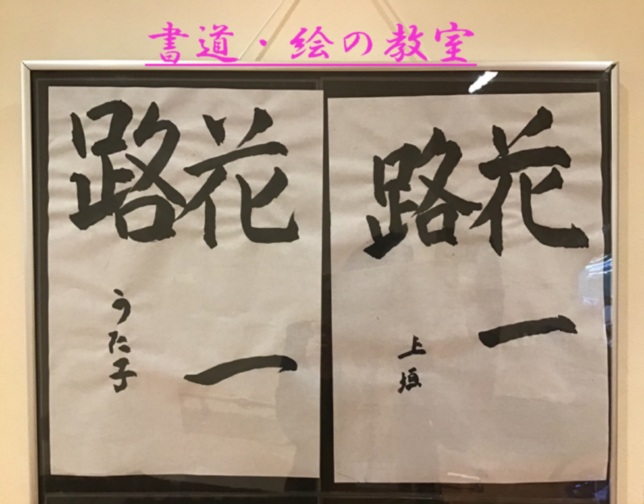 書道・絵の教室
花一
路
うた子
花一
路
上垣